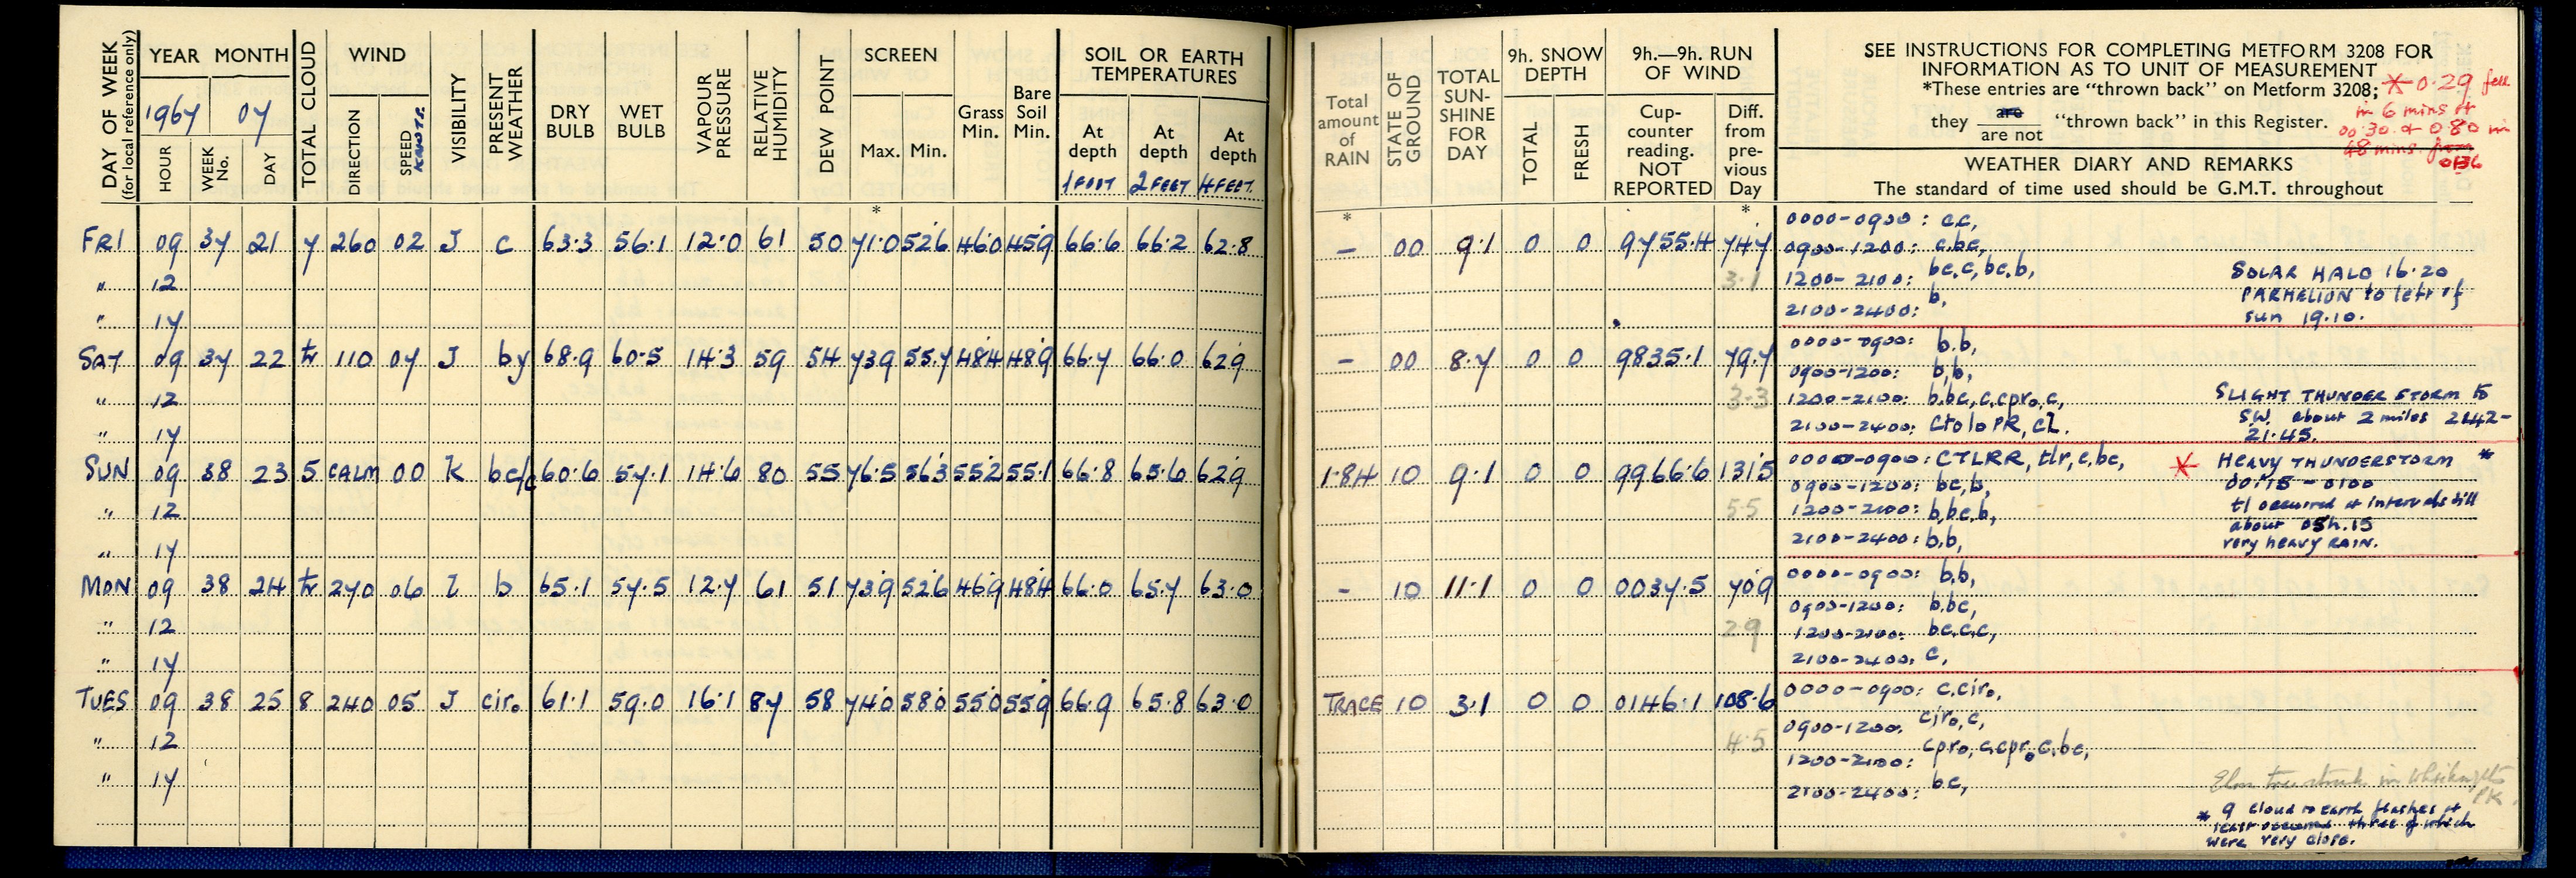 DAY OF WEEK (for local reference only)
YEAR MONTH
1967 07
HOUR
WEEK No.
DAY
TOTAL CLOUD
WIND
DIRECTION
SPEED KNOTS.
VISIBILITY
PRESENT WEATHER
DRY BULB
WET BULB
VAPOUR PRESSURE
RELATIVE HUMIDITY
DEW POINT
SCREEN
Max. Min.
*
Grass Min.
Bare Soil Min.
SOIL OR EARTH
TEMPERATURES
At depth 1 FOOT
At depth 2 FEET
At depth 4 FEET.
FRI 09 37 21 7 260 02 J c 63.3 56.1 12.0 61 50 71.0 52.6 46.0 45.9 66.6 66.2 62.8
" 12
" 17
SAT 09 37 22 tr 110 07 J by 68.9 60.5 14.3 59 54 73.9 55.7 48.4 48.9 66.7 66.0 62.9
" 12
" 17
SUN 09 38 23 5 CALM 00 K bc/c 60.6 57.1 14.6 80 55 76.5 56.3 55.2 55.1 66.8 65.6 62.9
" 12
" 17
MON 09 38 24 tr 270 06 l b 65.1 57.5 12.7 61 51 73.9 52.6 46.9 48.4 66.0 65.7 63.0
" 12
" 17
TUES 09 38 25 8 240 05 J cir₀ 61.1 59.0 16.1 87 58 74.0 58.0 55.0 55.9 66.9 65.8 63.0
" 12
" 17
Total amount of RAIN
*
STATE OF GROUND
TOTAL SUN-SHINE FOR DAY
9h. SNOW DEPTH
TOTAL
FRESH
9h.—9h. RUN OF WIND
Cup-counter reading. NOT REPORTED
Diff. from pre-vious Day
*
SEE INSTRUCTIONS FOR COMPLETING METFORM 3208 FOR
INFORMATION AS TO UNIT OF MEASUREMENT
*These entries are "thrown back" on Metform 3208;
they are / are not "thrown back" in this Register.
* 0.29 fell
in 6 mins at
00.30 & 0.80 in
48 mins. from
0136
WEATHER DIARY AND REMARKS
The standard of time used should be G.M.T. throughout
– 00 9.1 0 0 9755.4 74.7
3.1
0000-0900: c.c,
0900-1200: c.bc,
1200-2100: bc.c, bc.b,
2100-2400: b,
SOLAR HALO 16.20
PARHELION to left of
sun 19.10.
– 00 8.7 0 0 9835.1 79.7
3.3
0000-0900: b.b,
0900-1200: b,b,
1200-2100: b.bc, c.cpr₀,c,
2100-2400: ctolo PR, cl.
SLIGHT THUNDER STORM to
S.W. about 2 miles 2142-
21.45.
1.84 10 9.1 0 0 9966.6 131.5
5.5
0000-0900: CTLRR, tlr, c,bc,
0900-1200: bc,b,
1200-2100: b,bc,b,
2100-2400: b,b,
* HEAVY THUNDERSTORM *
00.15 - 0100
tl occurred at intervals till
about 05h.15
very heavy RAIN.
– 10 11.1 0 0 0037.5 70.9
2.9
0000-0900: b.b,
0900-1200: b.bc,
1200-2100: bc.c,c,
2100-2400: c,
TRACE 10 3.1 0 0 0146.1 108.6
4.5
0000-0900: c.cir₀,
0900-1200: cir₀,c,
1200-2100: cpr₀, c,cpr₀ c,bc,
2100-2400: bc,
Elm tree struck in Whiteknights
PK.
* 9 cloud to earth flashes at
least occurred three of which
were very close.